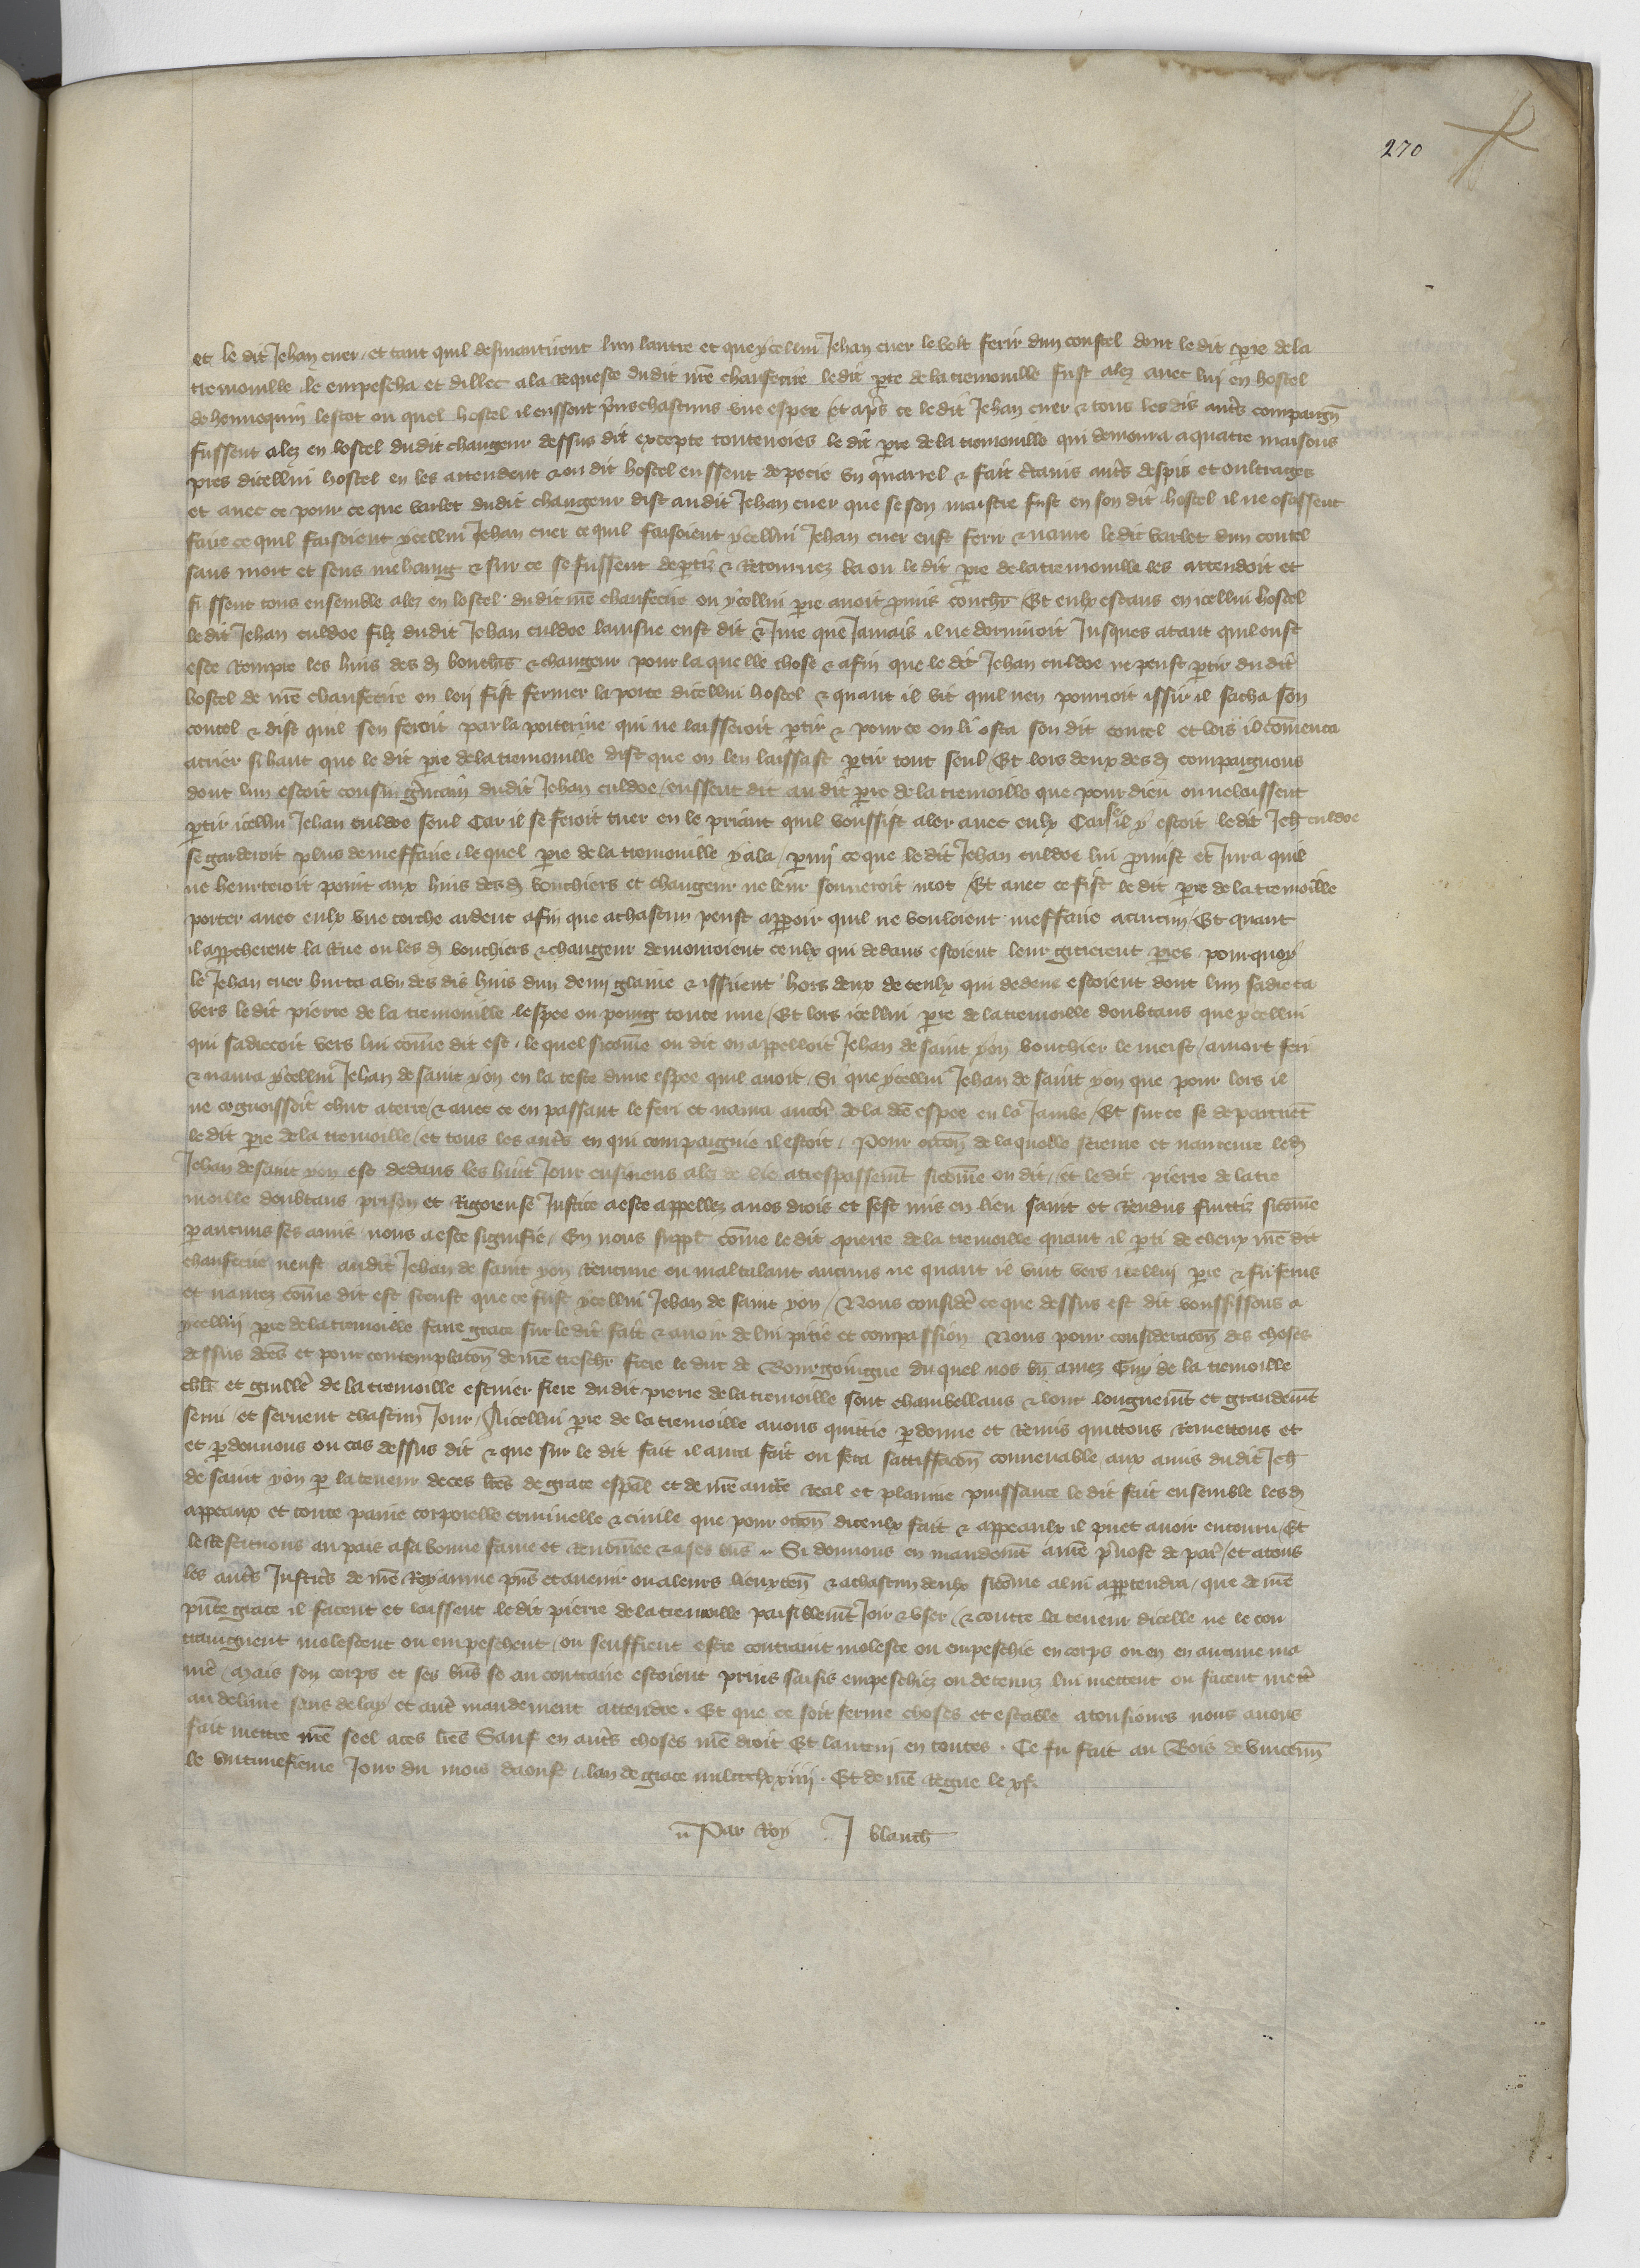 270
et le dit Jehan cuer et tant quil desmantirent lun lautre et que ycellui Jehan cuer le volt ferir dun coustel dont le dit pre de la
tremouille le empescha et dillec a la requeste dudit mē chanfecire le dit pre de la tremouille fust alez avec lui en hostel
de hennequin lescot ou quel hostel il eussent prins chascuns une espee et apres ce le dit Jehan cuer & tous les dis autrs compaign
fussent alez en lostel dudit changeur dessus dit excepte toutevoies le dit pre de la tremouille qui demoura a quatre maisons
pres dicellui hostel en les attendent & ou dit hostel eussent depecie un quarrel & fait ctains autrs despis et oultrages
et avec ce pour ce que varlet dudit changeur dist au dit Jehan cuer que se son maistre fust en son dit hostel il ne osassent
faire ce quil faisoient ycellui Jehan cuer ce quil faisoient ycellui Jehan cuer eust feru & navre le dit varlet dun coutel
sans mort et sens mehaing & sur ce se fussent deptiz & retournez la ou le dit pre de la tremouille les attendoit et
fussent tous ensemble alez en lostel dudit mē chanfecire ou ycellui pre avoit pmis couchr Et eulx estans en icellui hostel
le dit Jehan culdoe filz dudit Jehan culdoe lainsne eust dit & Jure que Jamais il ne dormiroit Jusques atant quil eust
este rompre les huis des d bouchrs & changeur pour la quelle chose & afin que le dit Jehan culdoe ne peust ptir du dit
hostel de mē chanfecire on leij fist fermer la porte dicellui hostel & quant il vit quil nen pourroit issir il sacha son
coutel & dist quil sen feroit par la poitrine qui ne laisseroit ptir & pour ce on li osta son dit coutel et lors il comenca
a crier si haut que le dit pre de la tremouille dist que on len laissast ptir tout seul Et lors deux des d compaignons
dont lun estoit cousin grmain dudit Jehan culdoe eussent dit au dit pre de la tremoille que pour dieu on ne laissent
ptir icellui Jehan culdoe seul Car il se feroit tuer en le priant quil voussist aler avec eulx Car se il y estoit le dit Jeh culdoe
se garderoit plus de meffaire le quel pre de la tremouille y ala pmi ce que le dit Jehan culdoe lui pmist et Jura quil
ne heurteroit point aux huis des d bouchiers et changeur ne leur sonneroit mot Et avec ce fist le dit pre de la tremoille
porter avec eulx une torche ardent afin que a chascun peust apparoir quil ne vouloient meffaire a aucun Et quant
il approcherent la Rue ou les d bouchiers & changeur demouroient ceulx qui dedans estoient leur giterent prres pourquoy
le Jehan cuer hurta a un des dis huis dun demi glaive & issirent hors deux de ceulx qui dedens estoient dont lun sadreca
vers ledit pierre de la tremouille lespee ou poing toute nue Et lors icellui pre de la tremoille doubtans que ycellui
qui sadrecoit vers lui come dit est le quel sicome on dit on appelloit Jehan de saint yon bouchier le meist a mort feri
& navra ycellui Jehan de saint yon en la teste dune espee quil avoit Si que ycellui Jehan de saint yon que pour lors il
ne cognoissoit chut a terre & avec ce en passant le feri et navra aucor de la dce espee en la Jambe Et sur ce se departirēt
le dit pre de la tremoille et tous les autrs en qui compaignie il estoit Pour occon de laquelle fereure et navreure led
Jehan de saint yon est dedans les huit Jour ensivens alez de vie a trespassemēt sicome on dit et le dit pierre de la tre
moille doubtans prison et Rigoreuse Justice a este appellez a nos drois et sest mis en lieu saint et rendus fuittiz sicome
p aucuns ses amis nous a este signifie En nous suppl come le dit pierre de la tremoille quant il pti de cheux mē dit
chanfecire neust audit Jehan de saint yon rencune ou maltalant aucuns ne quant il vint vers icellui pre & fu ferus
et navrez come dit est sceust que ce fust ycellui Jehan de saint yon Nous considr ce que dessus est dit voussissons a
ycellui pre de la tremoille faire grace sur le dit fait & avoir de lui pitie et compassion Nous pour consideracon des choses
dessus dces et pour contemplacon de nre treschr frere le duc de Bourgoingne du quel nos bn amez Guy de la tremoille
chlr et guillē de la tremoille escuier frere dudit pierre de la tremoille sont chambellans & lont longuemt et grandemt
servi et servent chascun Jour A icellui pre de la tremoille avons quittie pdonne et Remis quittons remettons et
et pdonnons ou cas dessus dit & que sur le dit fait il aura fait ou fera satiffacon convenable aux amis dudit Jeh
de saint yon p la teneur de ces lres de grace espal et de nre auctte real et plainne puissance le dit fait ensemble les d
appeaux et toute paine corporelle criminelle & civile que pour occon diceulx fait & appeaulx il puet avoir encouru Et
le Restituons au pais a sa bonne fame et renomee & a ses bns Si donnons en mandemt a nre pvost de par et a tous
les autrs Justicrs de nre Royaume pns et avenir ou a leurs lieuxten & a chascun deulx sicome a lui apptendra que de nre
pnte grace il facent et laissent ledit pierre de la tremoille paisiblemt Joir & user & contre la teneur dicelle ne le con
traingnent molestent ou empeschent ou seuffrent estre contraint moleste ou empeschie en corps ou en en aucune ma
nier Mais son corps et ses bns se au contraire estoient prins saisis empeschiez ou detenuz lui mettent ou facent mettr
au delivre sans delay et autr mandement attendre . Et que ce soit ferme choses et estable a tousiours nous avons
fait mettre nre seel a ces lres Sauf en autrs choses nre droit Et lautrui en toutes . Ce fu fait au Bois de vincenn
le vintunesieme Jour du mois daoust lan de grace mil ccclxxiiii . Et de nre Regne le xi
Par Roy J blanch